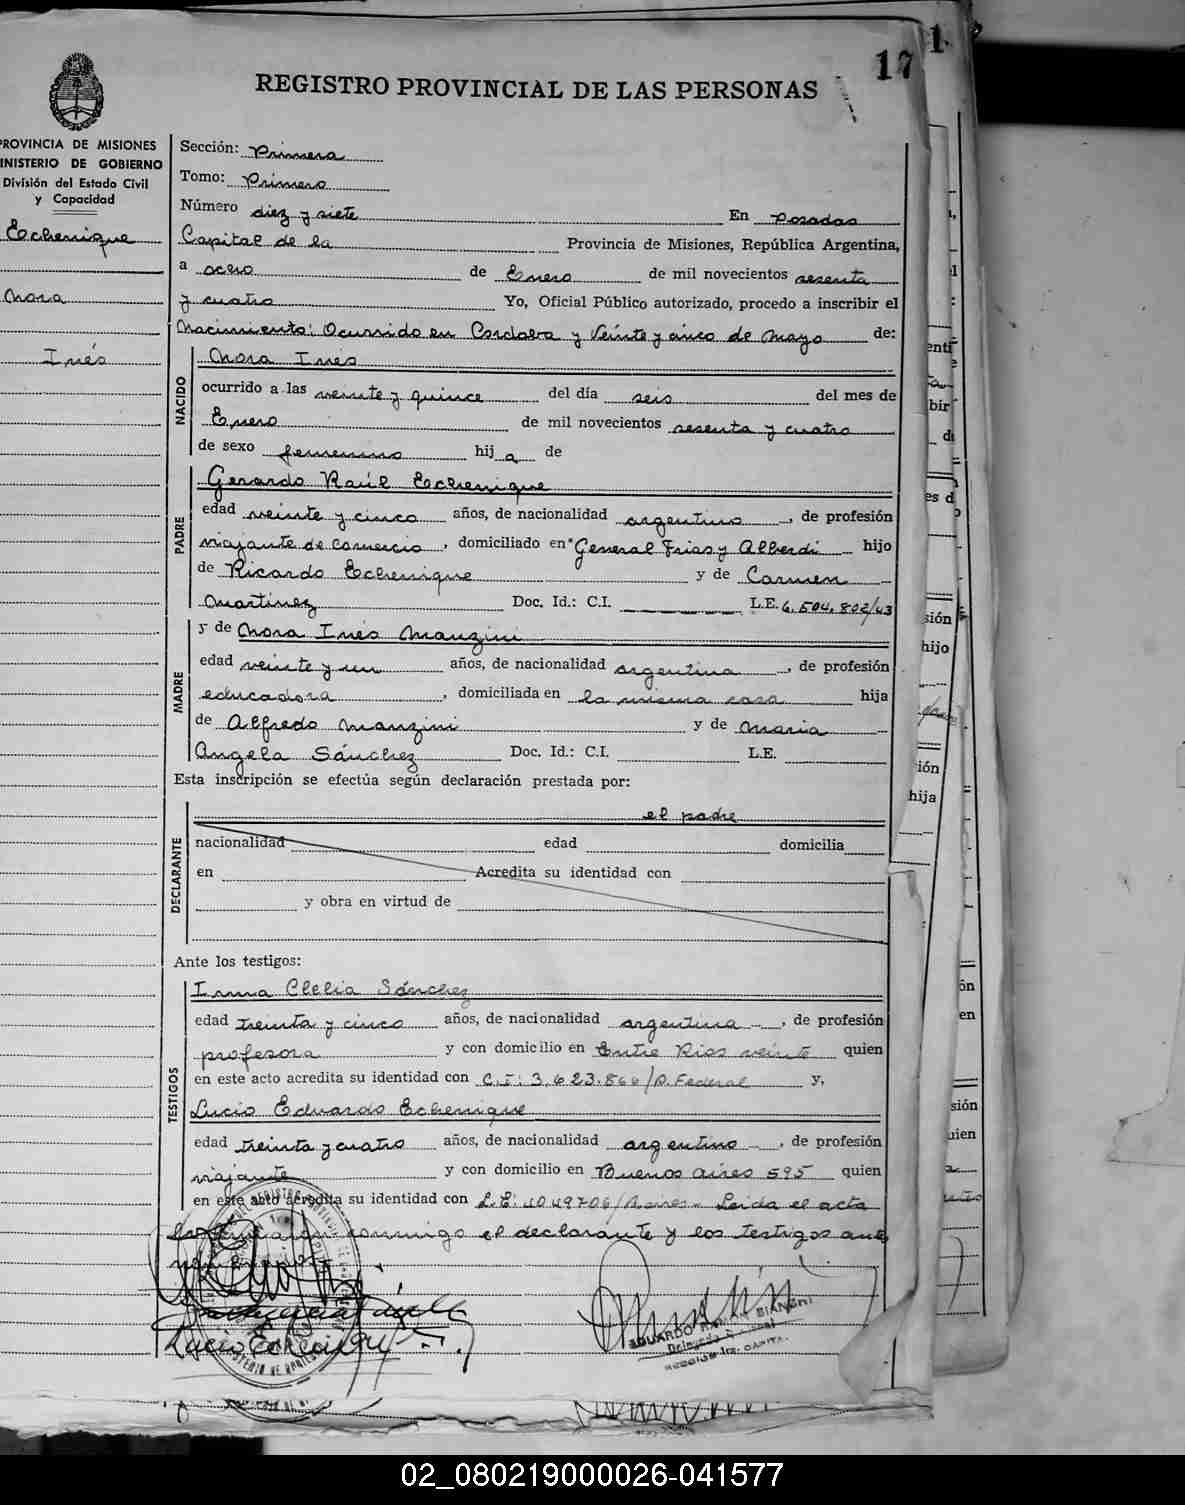 17
1
REGISTRO PROVINCIAL DE LAS PERSONAS
PROVINCIA DE MISIONES
MINISTERIO DE GOBIERNO
División del Estado Civil
y Capacidad
Echenique
Nora
Inés
Sección: Primera
Tomo: Primero
Número diez y siete En Posadas
Capital de la Provincia de Misiones, República Argentina,
a ocho de Enero de mil novecientos sesenta
y cuatro Yo, Oficial Público autorizado, procedo a inscribir el
Nacimiento: Ocurrido en Cordoba y Veinte y cinco de Mayo de:
NACIDO
Nora Ines
ocurrido a las veinte y quince del día seis del mes de
Enero de mil novecientos sesenta y cuatro
de sexo femenino hija de
PADRE
Gerardo Raúl Echenique
edad veinte y cinco años, de nacionalidad argentino, de profesión
viajante de comercio, domiciliado en General Frias y Alberdi hijo
de Ricardo Echenique y de Carmen
Martinez Doc. Id.: C.I. L.E. 6.504.802/43
MADRE
y de Nora Inés Manzini
edad veinte y un años, de nacionalidad argentina, de profesión
educadora, domiciliada en la misma casa hija
de Alfredo Manzini y de Maria
Angela Sánchez Doc. Id.: C.I. L.E.
Esta inscripción se efectúa según declaración prestada por:
DECLARANTE
el padre
nacionalidad edad domicilia
en Acredita su identidad con
y obra en virtud de
Ante los testigos:
TESTIGOS
Irma Clelia Sánchez
edad treinta y cinco años, de nacionalidad argentina, de profesión
profesora y con domicilio en Entre Rios veinte quien
en este acto acredita su identidad con C.I: 3.623.866/P. Federal y,
Lucio Eduardo Echenique
edad treinta y cuatro años, de nacionalidad argentino, de profesión
viajante y con domicilio en Buenos Aires 595 quien
en este acto acredita su identidad con L.E: 4049706/B. aires - Leida el acta
conmigo el declarante y los testigos ante
Lucio Echenique
EDUARDO RAMON BIANCHI
SECCION 1ra. CAPITAL
02_080219000026-041577